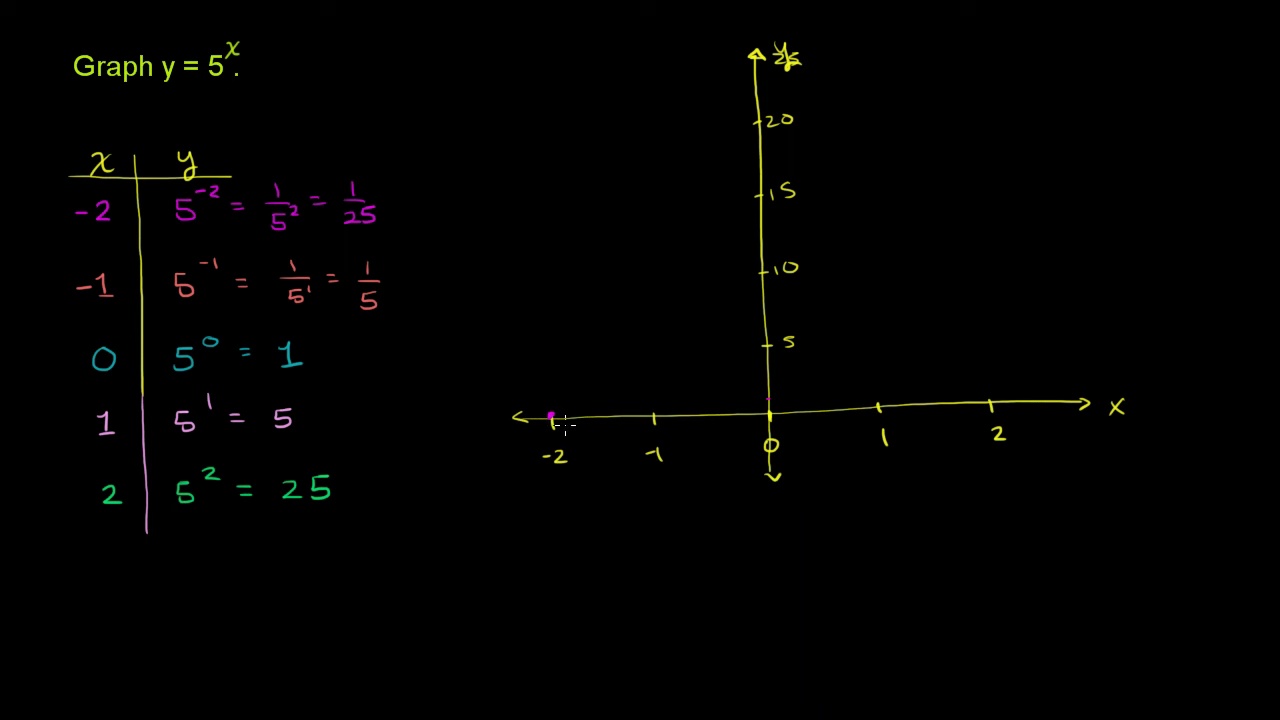 Graph y = 5^x.
x y
-2 5^-2 = 1/5^2 = 1/25
-1 5^-1 = 1/5^1 = 1/5
0 5^0 = 1
1 5^1 = 5
2 5^2 = 25
y
20
15
10
5
x
-2 -1 0 1 2